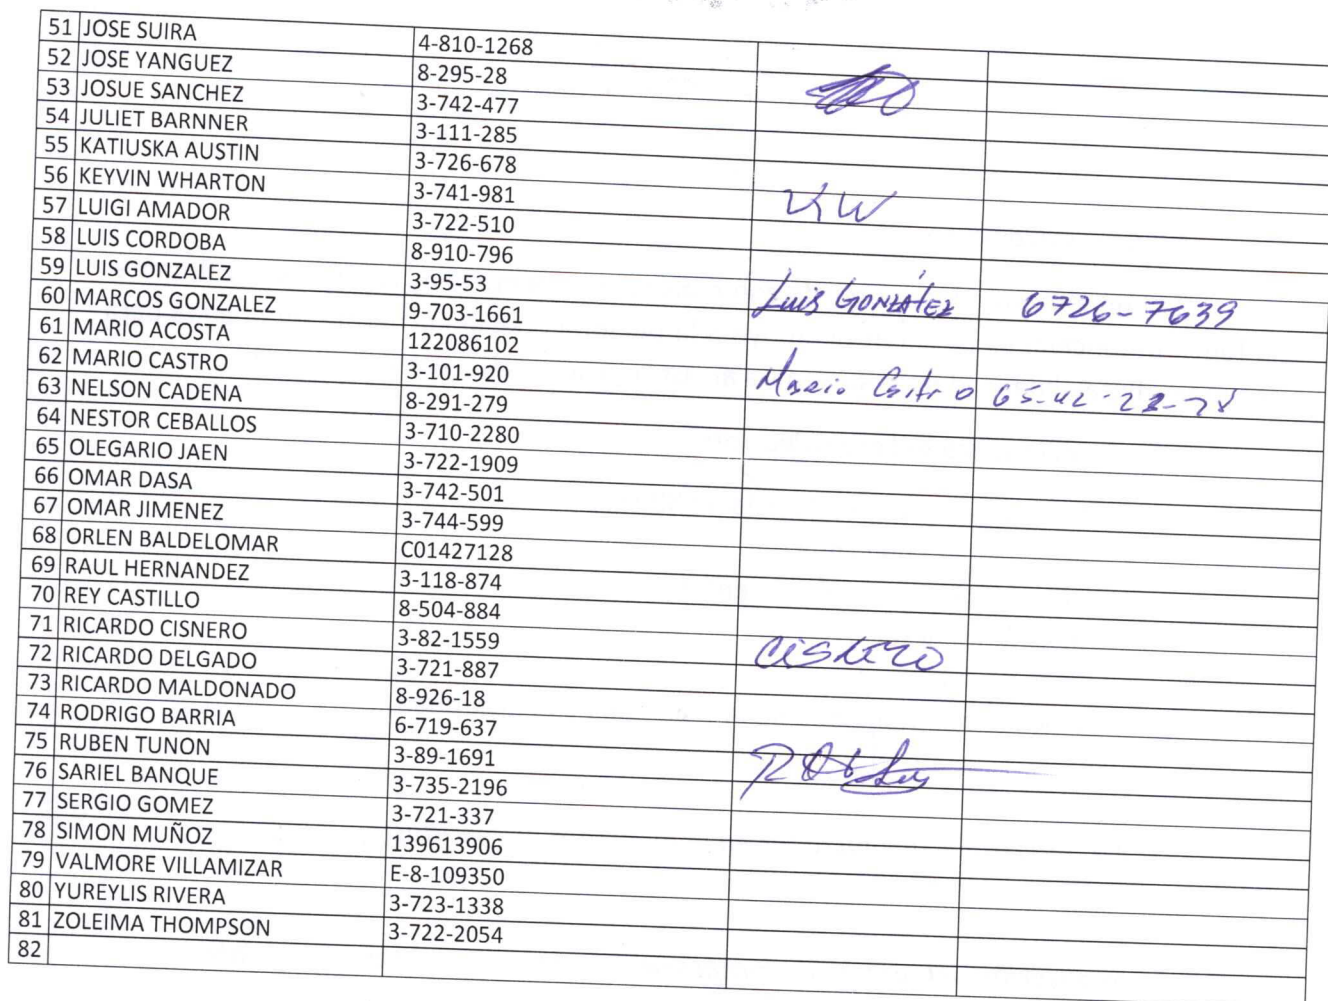 51 JOSE SUIRA 4-810-1268
52 JOSE YANGUEZ 8-295-28
53 JOSUE SANCHEZ 3-742-477
54 JULIET BARNNER 3-111-285
55 KATIUSKA AUSTIN 3-726-678
56 KEYVIN WHARTON 3-741-981 KW
57 LUIGI AMADOR 3-722-510
58 LUIS CORDOBA 8-910-796
59 LUIS GONZALEZ 3-95-53 Luis GONZÁLEZ 6726-7639
60 MARCOS GONZALEZ 9-703-1661
61 MARIO ACOSTA 122086102
62 MARIO CASTRO 3-101-920 Mario Castro
63 NELSON CADENA 8-291-279
64 NESTOR CEBALLOS 3-710-2280
65 OLEGARIO JAEN 3-722-1909
66 OMAR DASA 3-742-501
67 OMAR JIMENEZ 3-744-599
68 ORLEN BALDELOMAR C01427128
69 RAUL HERNANDEZ 3-118-874
70 REY CASTILLO 8-504-884
71 RICARDO CISNERO 3-82-1559 CISNERO
72 RICARDO DELGADO 3-721-887
73 RICARDO MALDONADO 8-926-18
74 RODRIGO BARRIA 6-719-637
75 RUBEN TUNON 3-89-1691
76 SARIEL BANQUE 3-735-2196
77 SERGIO GOMEZ 3-721-337
78 SIMON MUÑOZ 139613906
79 VALMORE VILLAMIZAR E-8-109350
80 YUREYLIS RIVERA 3-723-1338
81 ZOLEIMA THOMPSON 3-722-2054
82